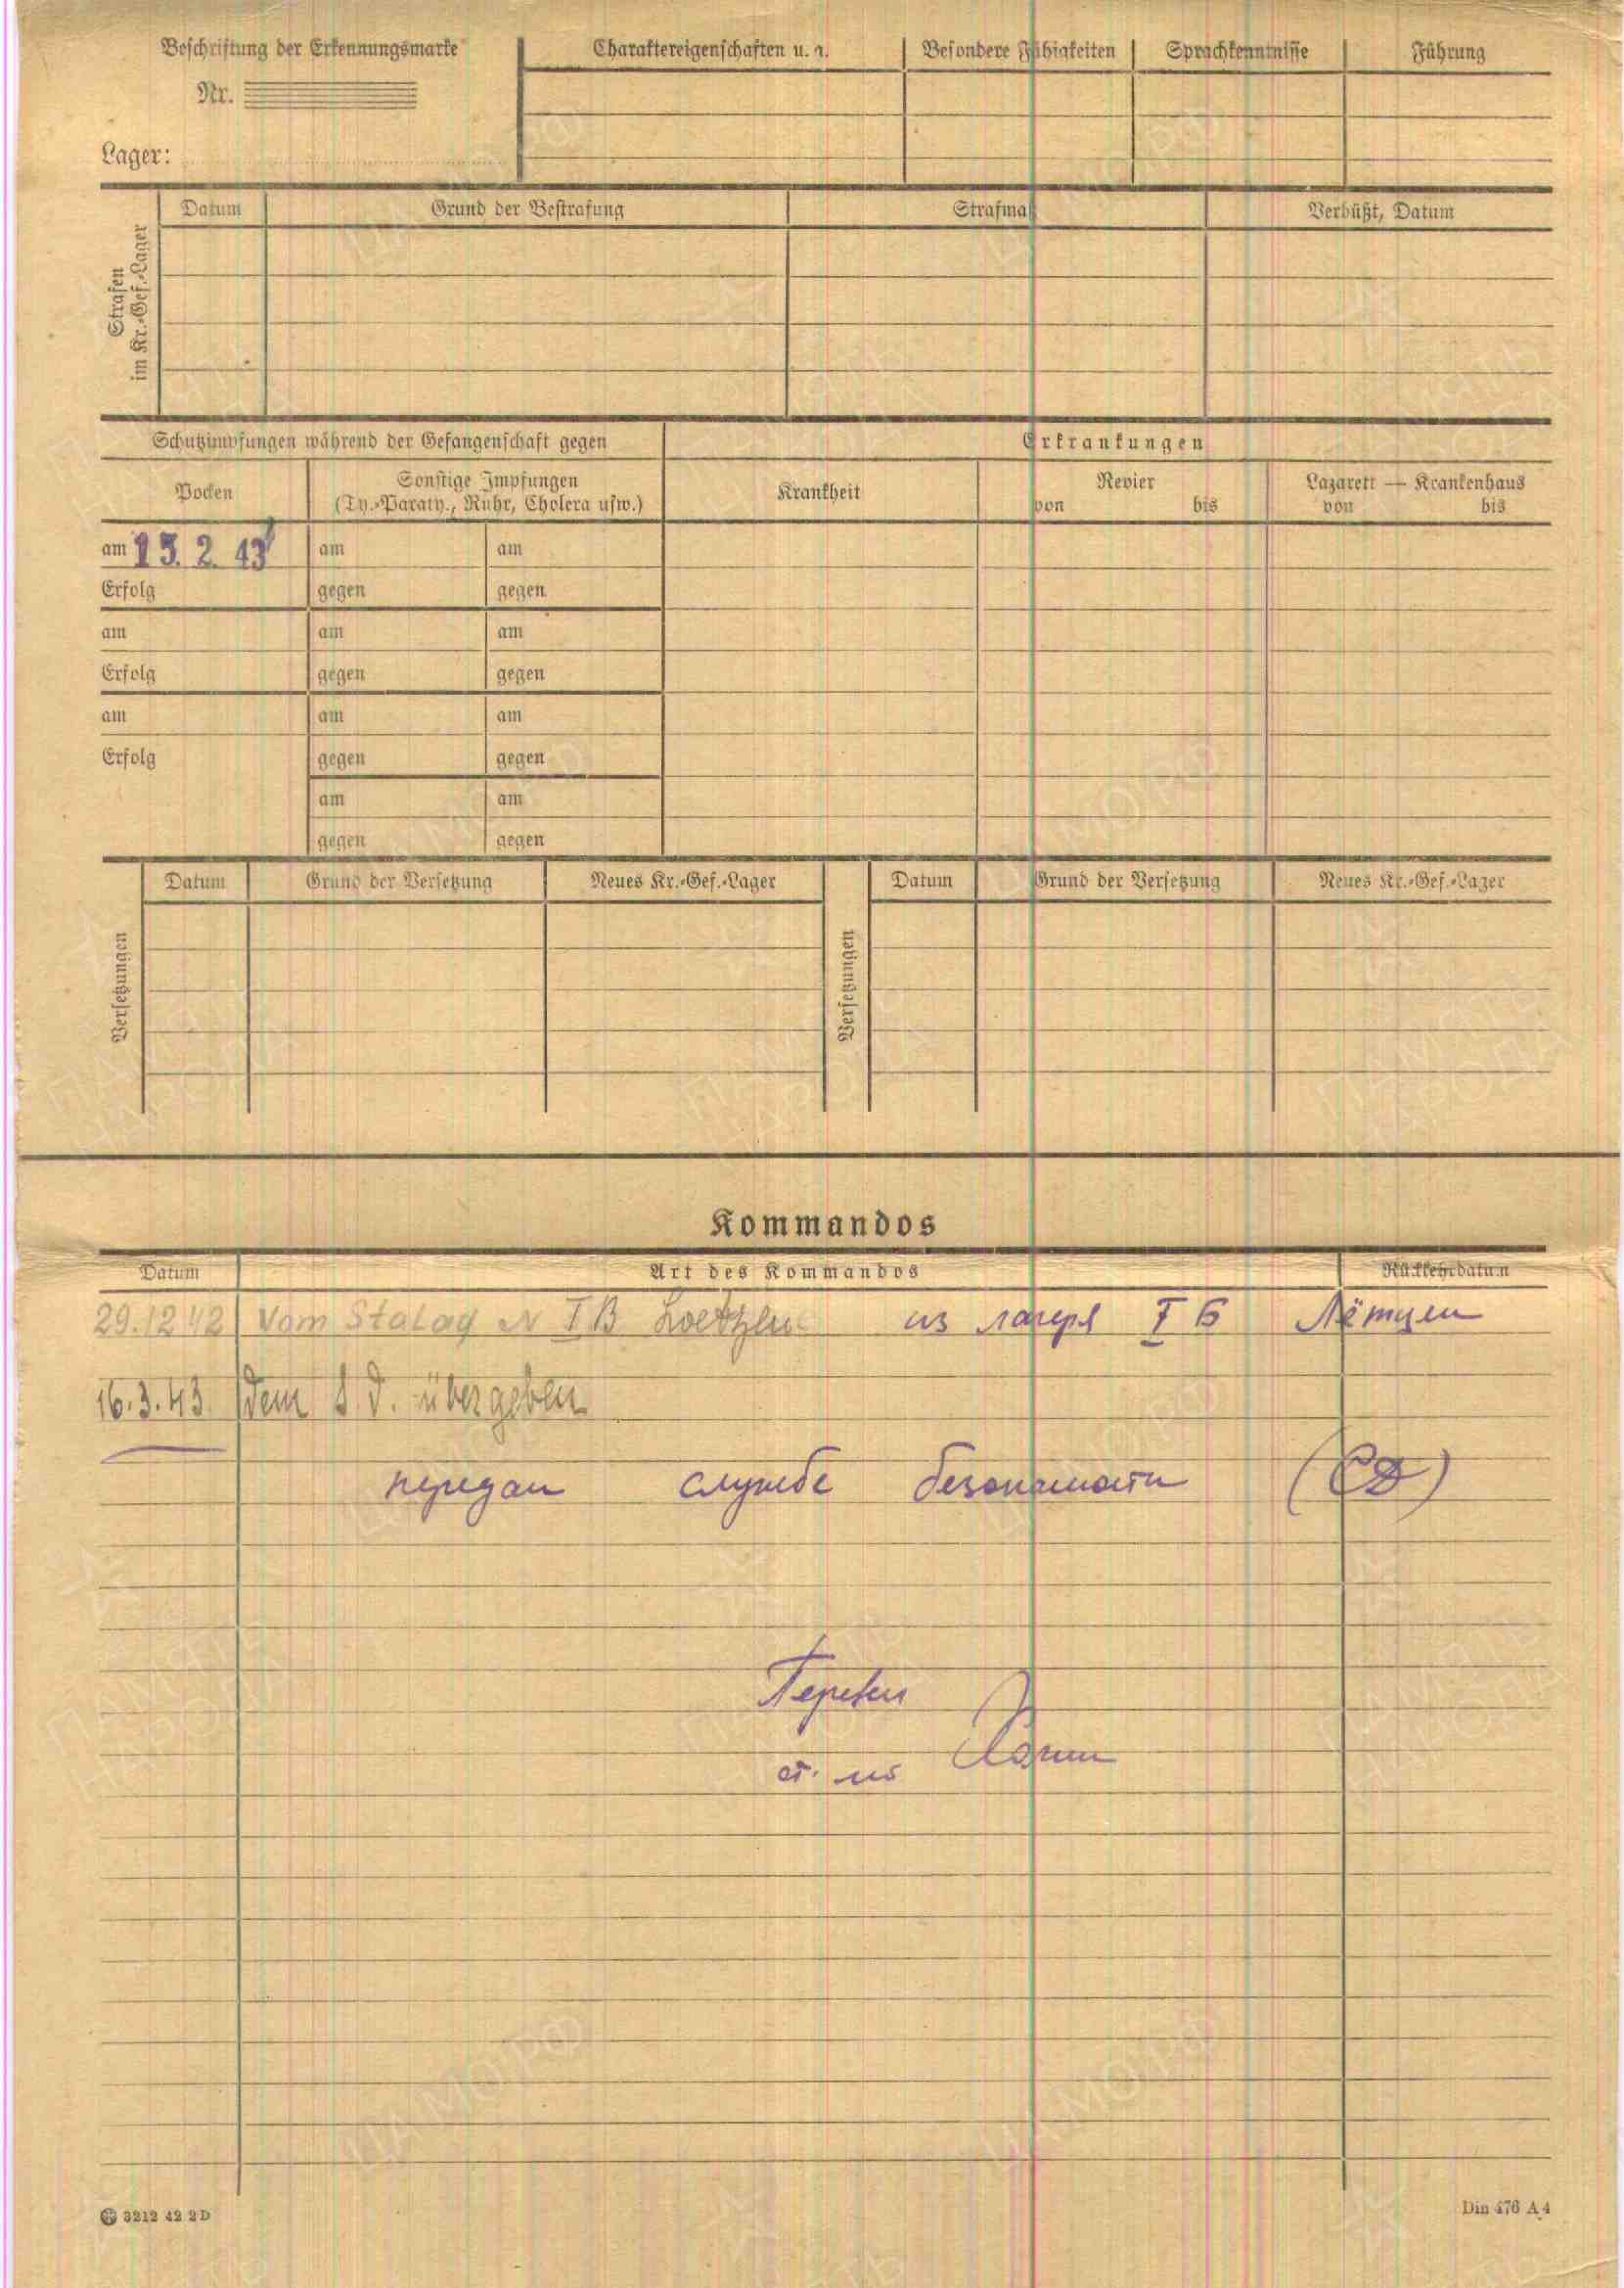 Beschriftung der Erkennungsmarke
Nr.
Lager:
Charaktereigenschaften u. a. Besondere Fähigkeiten Sprachkenntnisse Führung
Strafen im Kr.-Gef.-Lager
Datum Grund der Bestrafung Strafmaß Verbüßt, Datum
Schutzimpfungen während der Gefangenschaft gegen Erkrankungen
Pocken Sonstige Impfungen Krankheit Revier Lazarett — Krankenhaus
(Ty.-Paraty., Ruhr, Cholera usw.) von bis von bis
am 15. 2. 43 am am
Erfolg gegen gegen
am am am
Erfolg gegen gegen
am am am
Erfolg gegen gegen
am am
gegen gegen
Versetzungen Datum Grund der Versetzung Neues Kr.-Gef.-Lager Versetzungen Datum Grund der Versetzung Neues Kr.-Gef.-Lager
Kommandos
Datum Art des Kommandos Rückkehrdatum
29.12 42 Vom Stalag I B Loetzen из лагеря I Б Лётцен
16.3.43. dem S. D. übergeben
передан службе безопасности (СД)
Перевел
ст. л-т
3212 42 2D
Din 476 A 4
ПАМЯТЬ НАРОДА
ЦАМО РФ